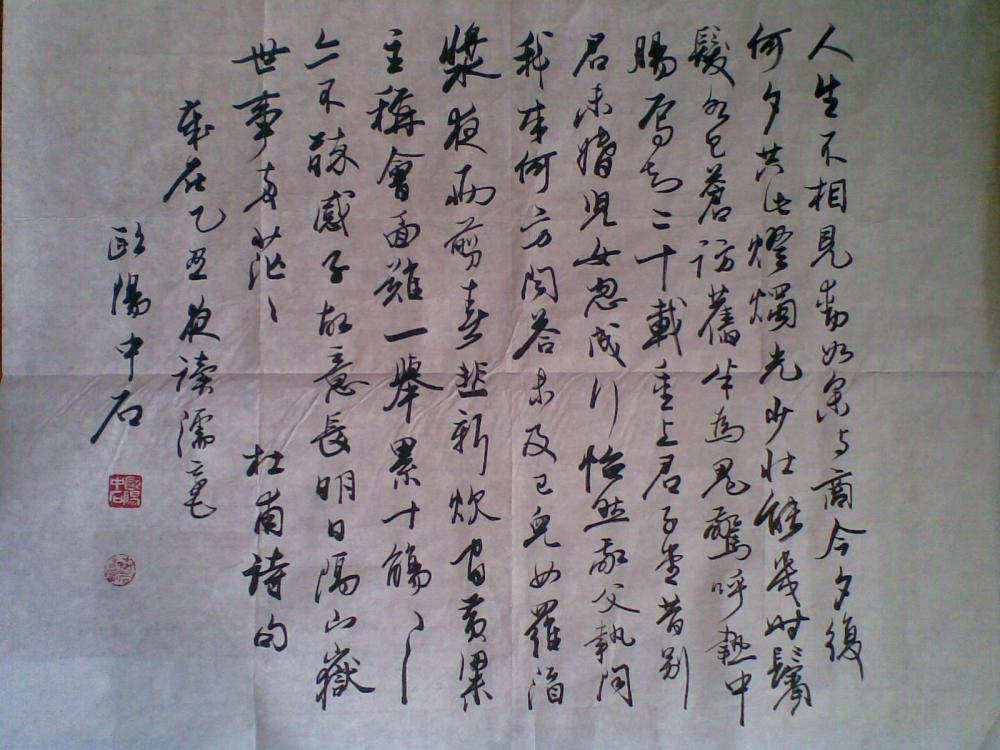 人生不相見動如參与商今夕復
何夕共此燈燭光少壯能幾時鬢
髮各已蒼訪舊半為鬼驚呼熱中
腸焉知二十載重上君子堂昔別
君未婚兒女忽成行怡然敬父執問
我來何方問答未及已兒女羅酒
漿夜雨剪春韭新炊間黃粱
主稱會面難一舉累十觴〻〻
亦不醉感子故意長明日隔山嶽
世事兩茫〻 杜甫詩句
歲在乙丑夜讀濡毫
歐陽中石
歐陽中石